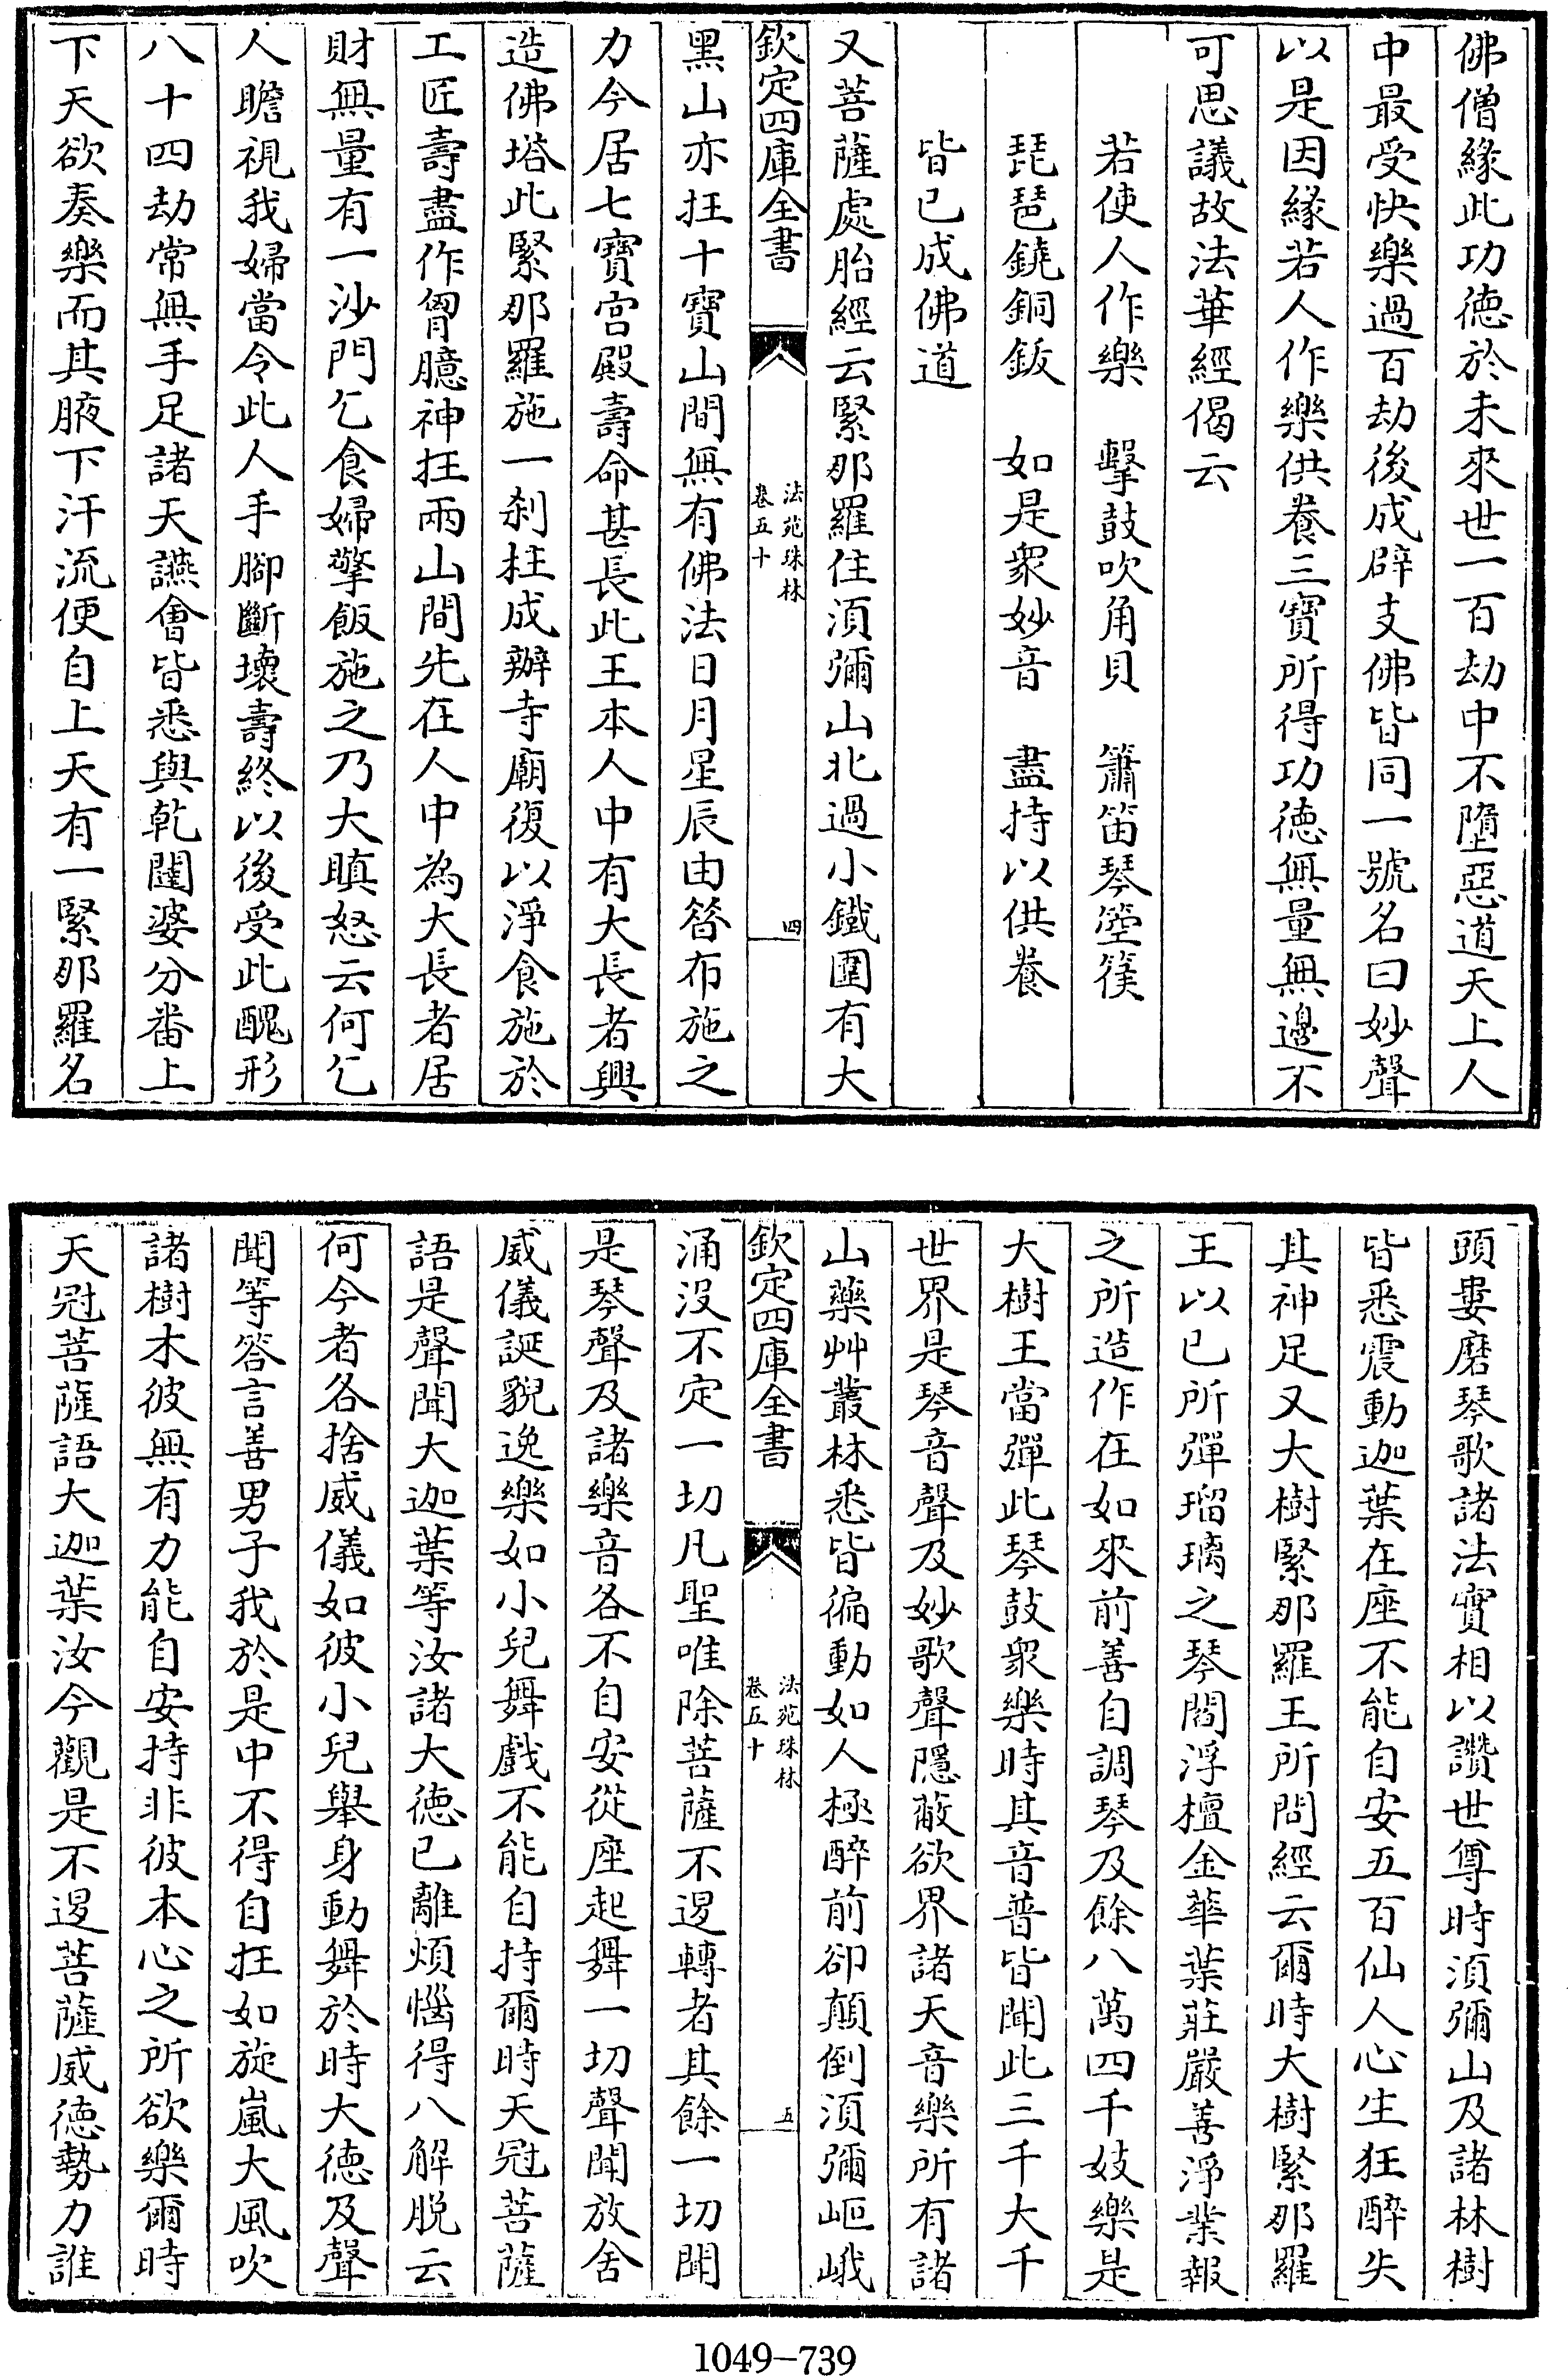 佛僧緣此功德於未來世一百劫中不墮惡道天上人
中最受快樂過百劫後成辟支佛皆同一號名曰妙聲
以是因緣若人作樂供養三寶所得功德無量無邊不
可思議故法華經偈云
若使人作樂　擊鼓吹角貝　簫笛琴箜篌
琵琶鐃銅鈸　如是衆妙音　盡持以供養
皆已成佛道
又菩薩處胎經云緊那羅住須彌山北過小鐵圍有大
欽定四庫全書
法苑珠林
卷五十
四
黑山亦在十寶山間無有佛法日月星辰由昔布施之
力今居七寶宮殿壽命甚長此王本人中有大長者興
造佛塔此緊那羅施一刹柱成辦寺廟復以淨食施於
工匠壽盡作胷臆神在兩山間先在人中為大長者居
財無量有一沙門乞食婦擎飯施之乃大瞋怒云何乞
人瞻視我婦當令此人手腳斷壞壽終以後受此醜形
八十四劫常無手足諸天讌會皆悉與乾闥婆分番上
下天欲奏樂而其腋下汗流便自上天有一緊那羅名
頭婁磨琴歌諸法實相以讚世尊時須彌山及諸林樹
皆悉震動迦葉在座不能自安五百仙人心生狂醉失
其神足又大樹緊那羅王所問經云爾時大樹緊那羅
王以己所彈瑠璃之琴閻浮檀金華葉莊嚴善淨業報
之所造作在如來前善自調琴及餘八萬四千妓樂是
大樹王當彈此琴鼓衆樂時其音普皆聞此三千大千
世界是琴音聲及妙歌聲隱蔽欲界諸天音樂所有諸
山藥艸叢林悉皆徧動如人極醉前卻顛倒須彌岠峨
欽定四庫全書
法苑珠林
卷五十
五
涌沒不定一切凡聖唯除菩薩不退轉者其餘一切聞
是琴聲及諸樂音各不自安從座起舞一切聲聞放舍
威儀誕貌逸樂如小兒舞戲不能自持爾時天冠菩薩
語是聲聞大迦葉等汝諸大德已離煩惱得八解脫云
何今者各捨威儀如彼小兒舉身動舞於時大德及聲
聞等答言善男子我於是中不得自在如旋嵐大風吹
諸樹木彼無有力能自安持非彼本心之所欲樂爾時
天冠菩薩語大迦葉汝今觀是不退菩薩威德勢力誰
1049-739